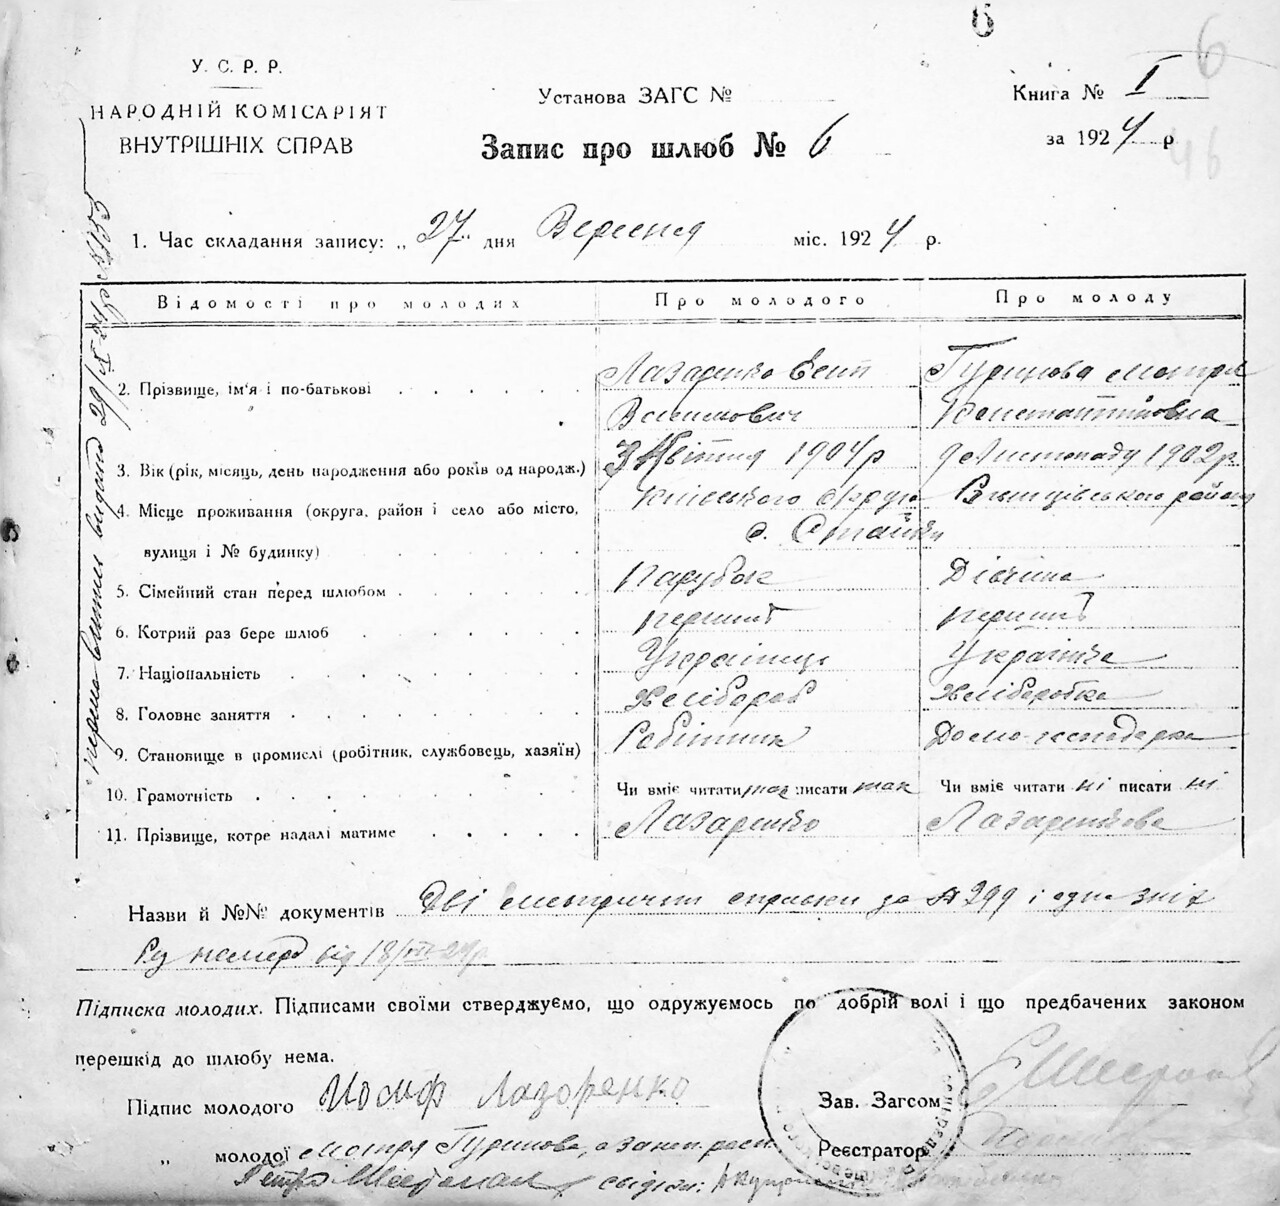 6
6
У. С. Р. Р.
НАРОДНІЙ КОМІСАРІЯТ
ВНУТРІШНІХ СПРАВ
Установа ЗАГС №
Книга № I
Запис про шлюб № 6
за 1924 р
46
1. Час складання запису: „ 27 " дня Вересня міс. 1924 р.
Відомості про молодих
Про молодого
Про молоду
2. Прізвище, ім'я і по-батькові
Лазаренко Есип
Гуринова Мотря
Константіновна
3. Вік (рік, місяць, день народження або років од народж.)
Квітня 1904 р
9 Листопаду 1902 р.
4. Місце проживання (округа, район і село або місто,
Київського округи
району
вулиця і № будинку)
с. Стайки
5. Сімейний стан перед шлюбом
парубок
Дівчина
6. Котрий раз бере шлюб
перший
перший
7. Національність
Українець
Українка
8. Головне заняття
Хлібороб
Хліборобка
9. Становище в промислі (робітник, службовець, хазяїн)
Робітник
Домо-господарка
10. Грамотність
Чи вміє читати так писати так
Чи вміє читати ні писати ні
11. Прізвище, котре надалі матиме
Лазаренко
Лазаренкова
Назви й №№ документів Дві метричні справки за № 299 і
від 18/VIII 24 р
Підписка молодих. Підписами своїми стверджуємо, що одружуємось по добрій волі і що предбачених законом
перешкід до шлюбу нема.
Підпис молодого Иосиф Лазоренко
Зав. Загсом
„ молодої Мотря Гуринова, а
Реєстратор
Петро
29/IX 24 р №155